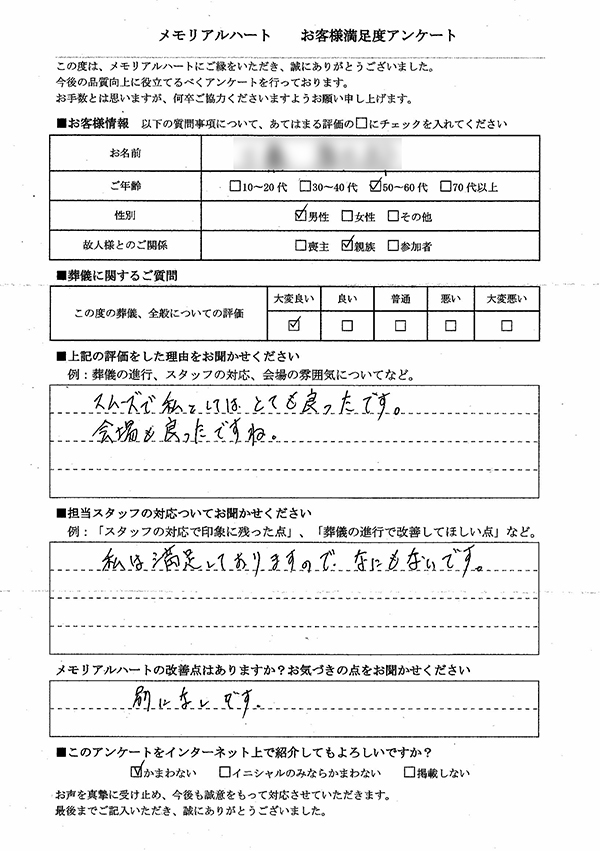 メモリアルハート　お客様満足度アンケート
この度は、メモリアルハートにご縁をいただき、誠にありがとうございました。
今後の品質向上に役立てるべくアンケートを行っております。
お手数とは思いますが、何卒ご協力くださいますようお願い申し上げます。
■お客様情報　以下の質問事項について、あてはまる評価の□にチェックを入れてください
お名前
ご年齢　□10～20代　□30～40代　☑50～60代　□70代以上
性別　☑男性　□女性　□その他
故人様とのご関係　□喪主　☑親族　□参加者
■葬儀に関するご質問
大変良い　良い　普通　悪い　大変悪い
この度の葬儀、全般についての評価　☑　□　□　□　□
■上記の評価をした理由をお聞かせください
例：葬儀の進行、スタッフの対応、会場の雰囲気についてなど。
スムーズで私としてはとても良ったです。
会場も良ったですね。
■担当スタッフの対応ついてお聞かせください
例：「スタッフの対応で印象に残った点」、「葬儀の進行で改善してほしい点」など。
私は満足しておりますので、なにもないです。
メモリアルハートの改善点はありますか？お気づきの点をお聞かせください
別になしです。
■このアンケートをインターネット上で紹介してもよろしいですか？
☑かまわない　□イニシャルのみならかまわない　□掲載しない
お声を真摯に受け止め、今後も誠意をもって対応させていただきます。
最後までご記入いただき、誠にありがとうございました。